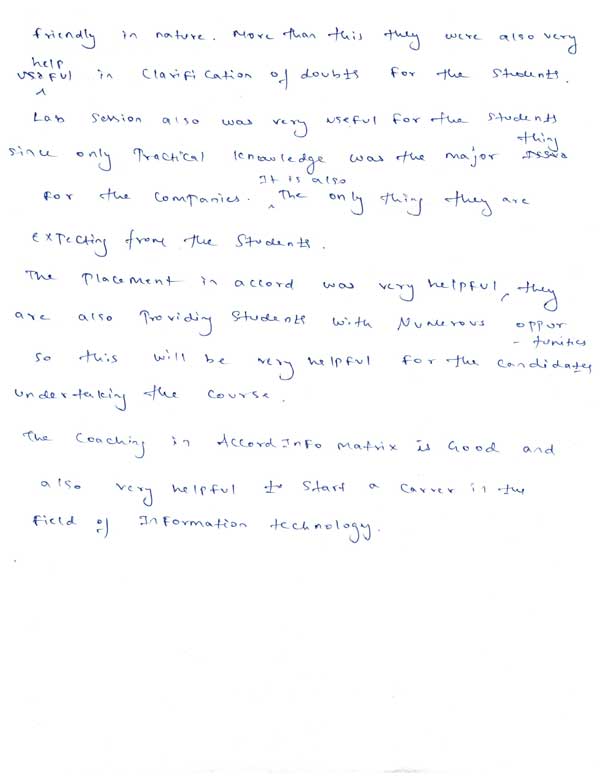 friendly in nature. More than this they were also very
help
useful in Clarification of doubts for the students.
Lab Session also was very useful for the students
thing
since only Practical knowledge was the major
It is also
for the companies. The only thing they are
expecting from the students.
The Placement in accord was very helpful, they
are also Providing Students with Numerous oppur
- tunities
so this will be very helpful for the candidates
undertaking the course.
The Coaching in Accord Info Matrix is Good and
also very helpful to start a carrer in the
field of Information technology.